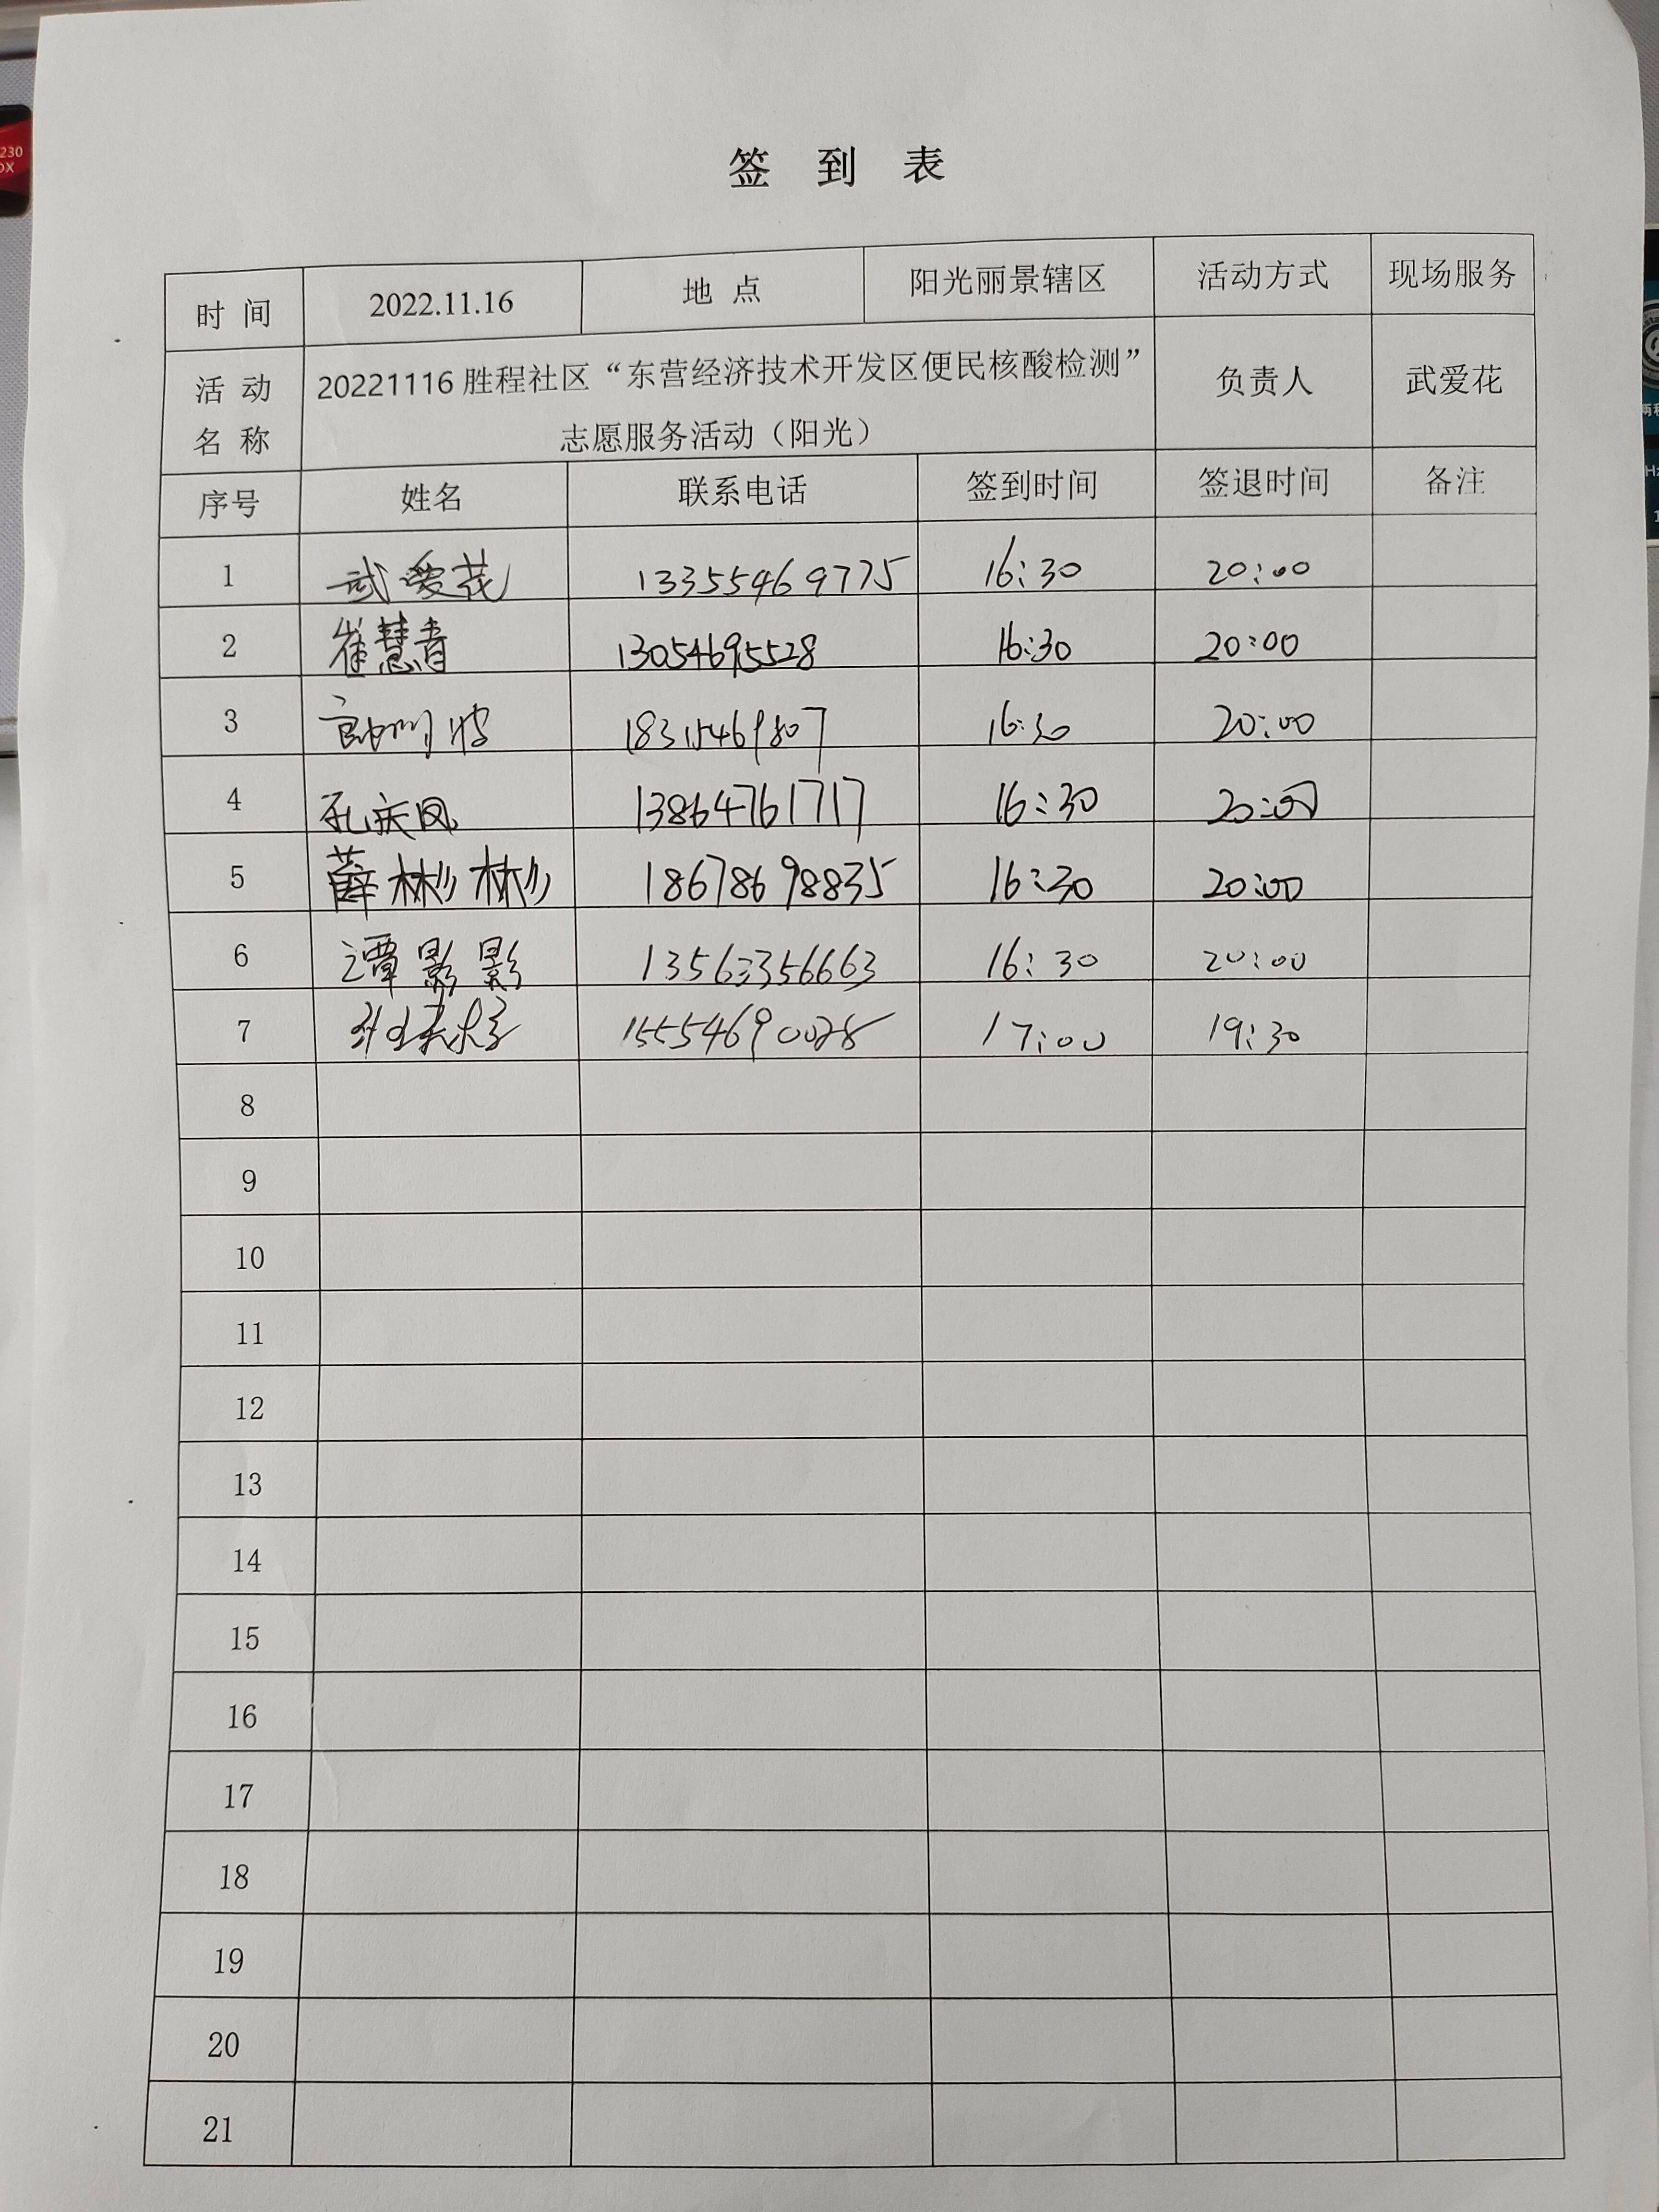 230
OX
签 到 表
时 间 2022.11.16 地 点 阳光丽景辖区 活动方式 现场服务
活 动 名 称 20221116胜程社区“东营经济技术开发区便民核酸检测” 负责人 武爱花
志愿服务活动（阳光）
序号 姓名 联系电话 签到时间 签退时间 备注
1 武爱花 13355469775 16:30 20:00
2 崔慧青 13054695528 16:30 20:00
3 16:30 20:00
4 孔庆凤 13864761717 16:30 20:00
5 薛彬彬 18678698835 16:30 20:00
6 谭影影 13563356663 16:30 20:00
7 17:00 19:30
8
9
10
11
12
13
14
15
16
17
18
19
20
21